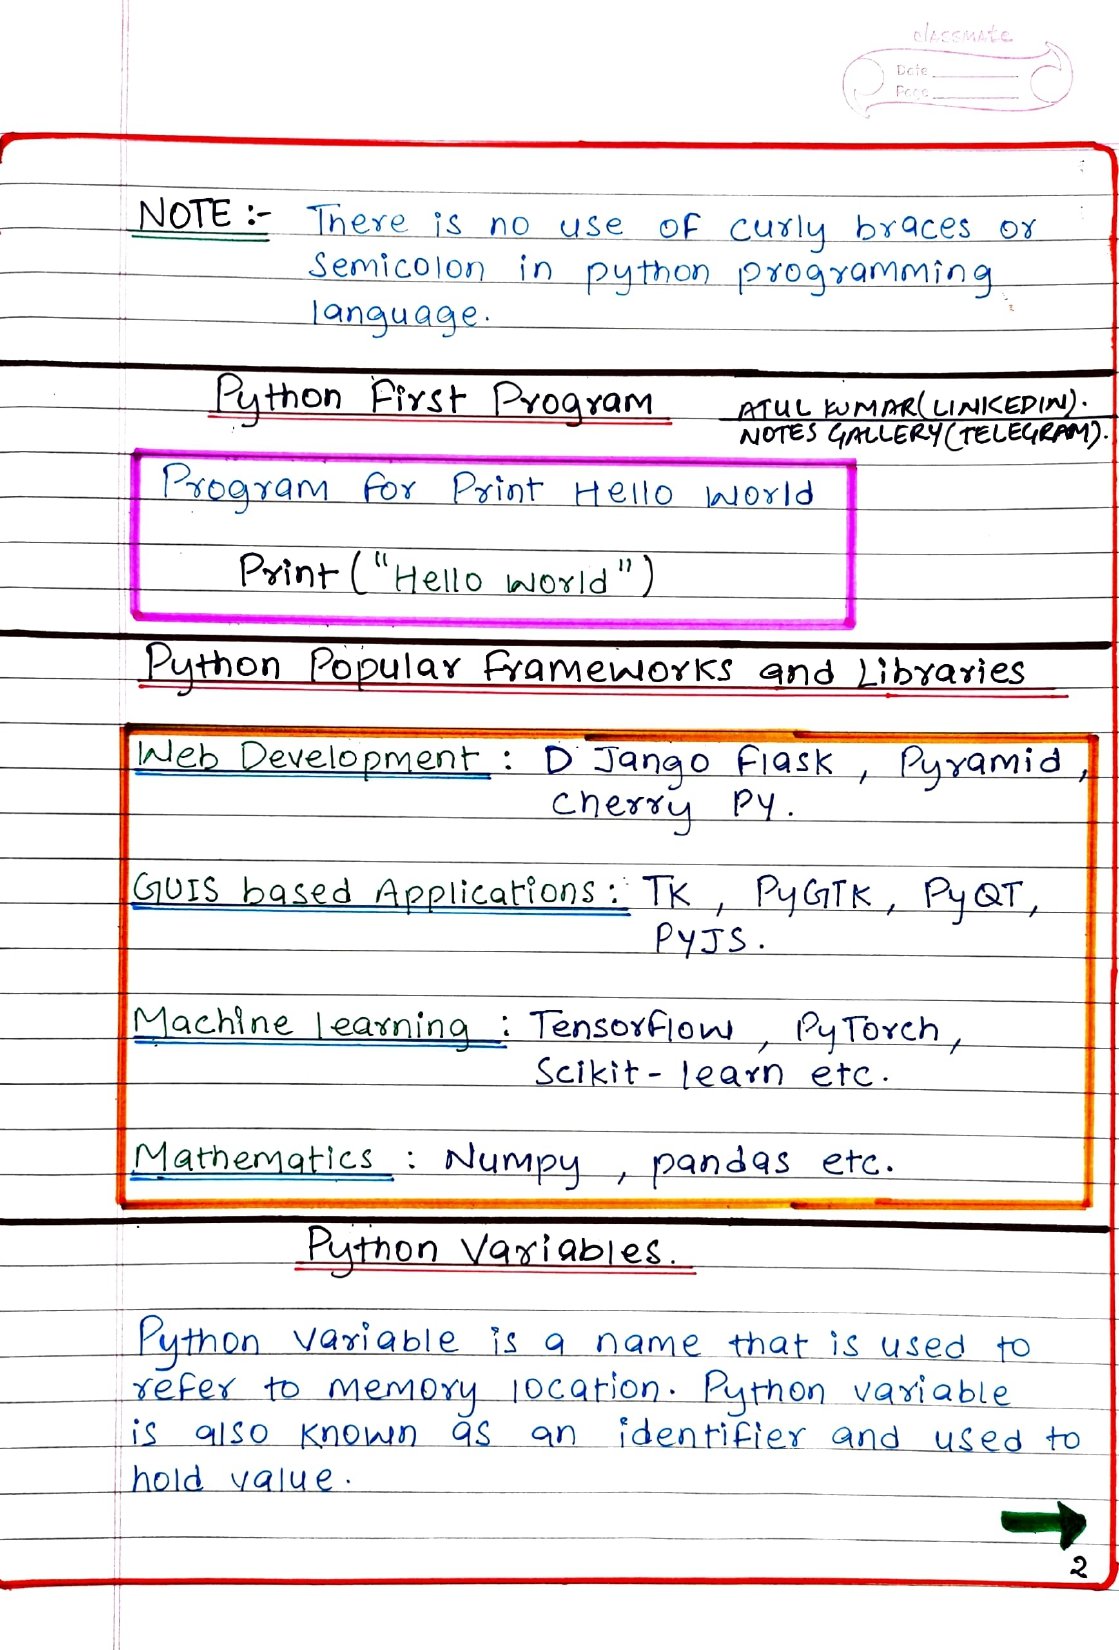 classmate
Date
Page
NOTE :- There is no use of curly braces or
semicolon in python programming
language.
Python First Program
ATUL KUMAR(LINKEDIN).
NOTES GALLERY(TELEGRAM).
Program for Print Hello World
Print ("Hello World")
Python Popular Frameworks and Libraries
Web Development : D Jango flask , Pyramid ,
Cherry PY.
GUIS based Applications : TK , PyGTK , PyQT,
PYJS.
Machine learning : Tensorflow , PyTorch,
Scikit - learn etc.
Mathematics : Numpy , pandas etc.
Python Variables.
Python variable is a name that is used to
refer to memory location. Python variable
is also known as an identifier and used to
hold value.
2